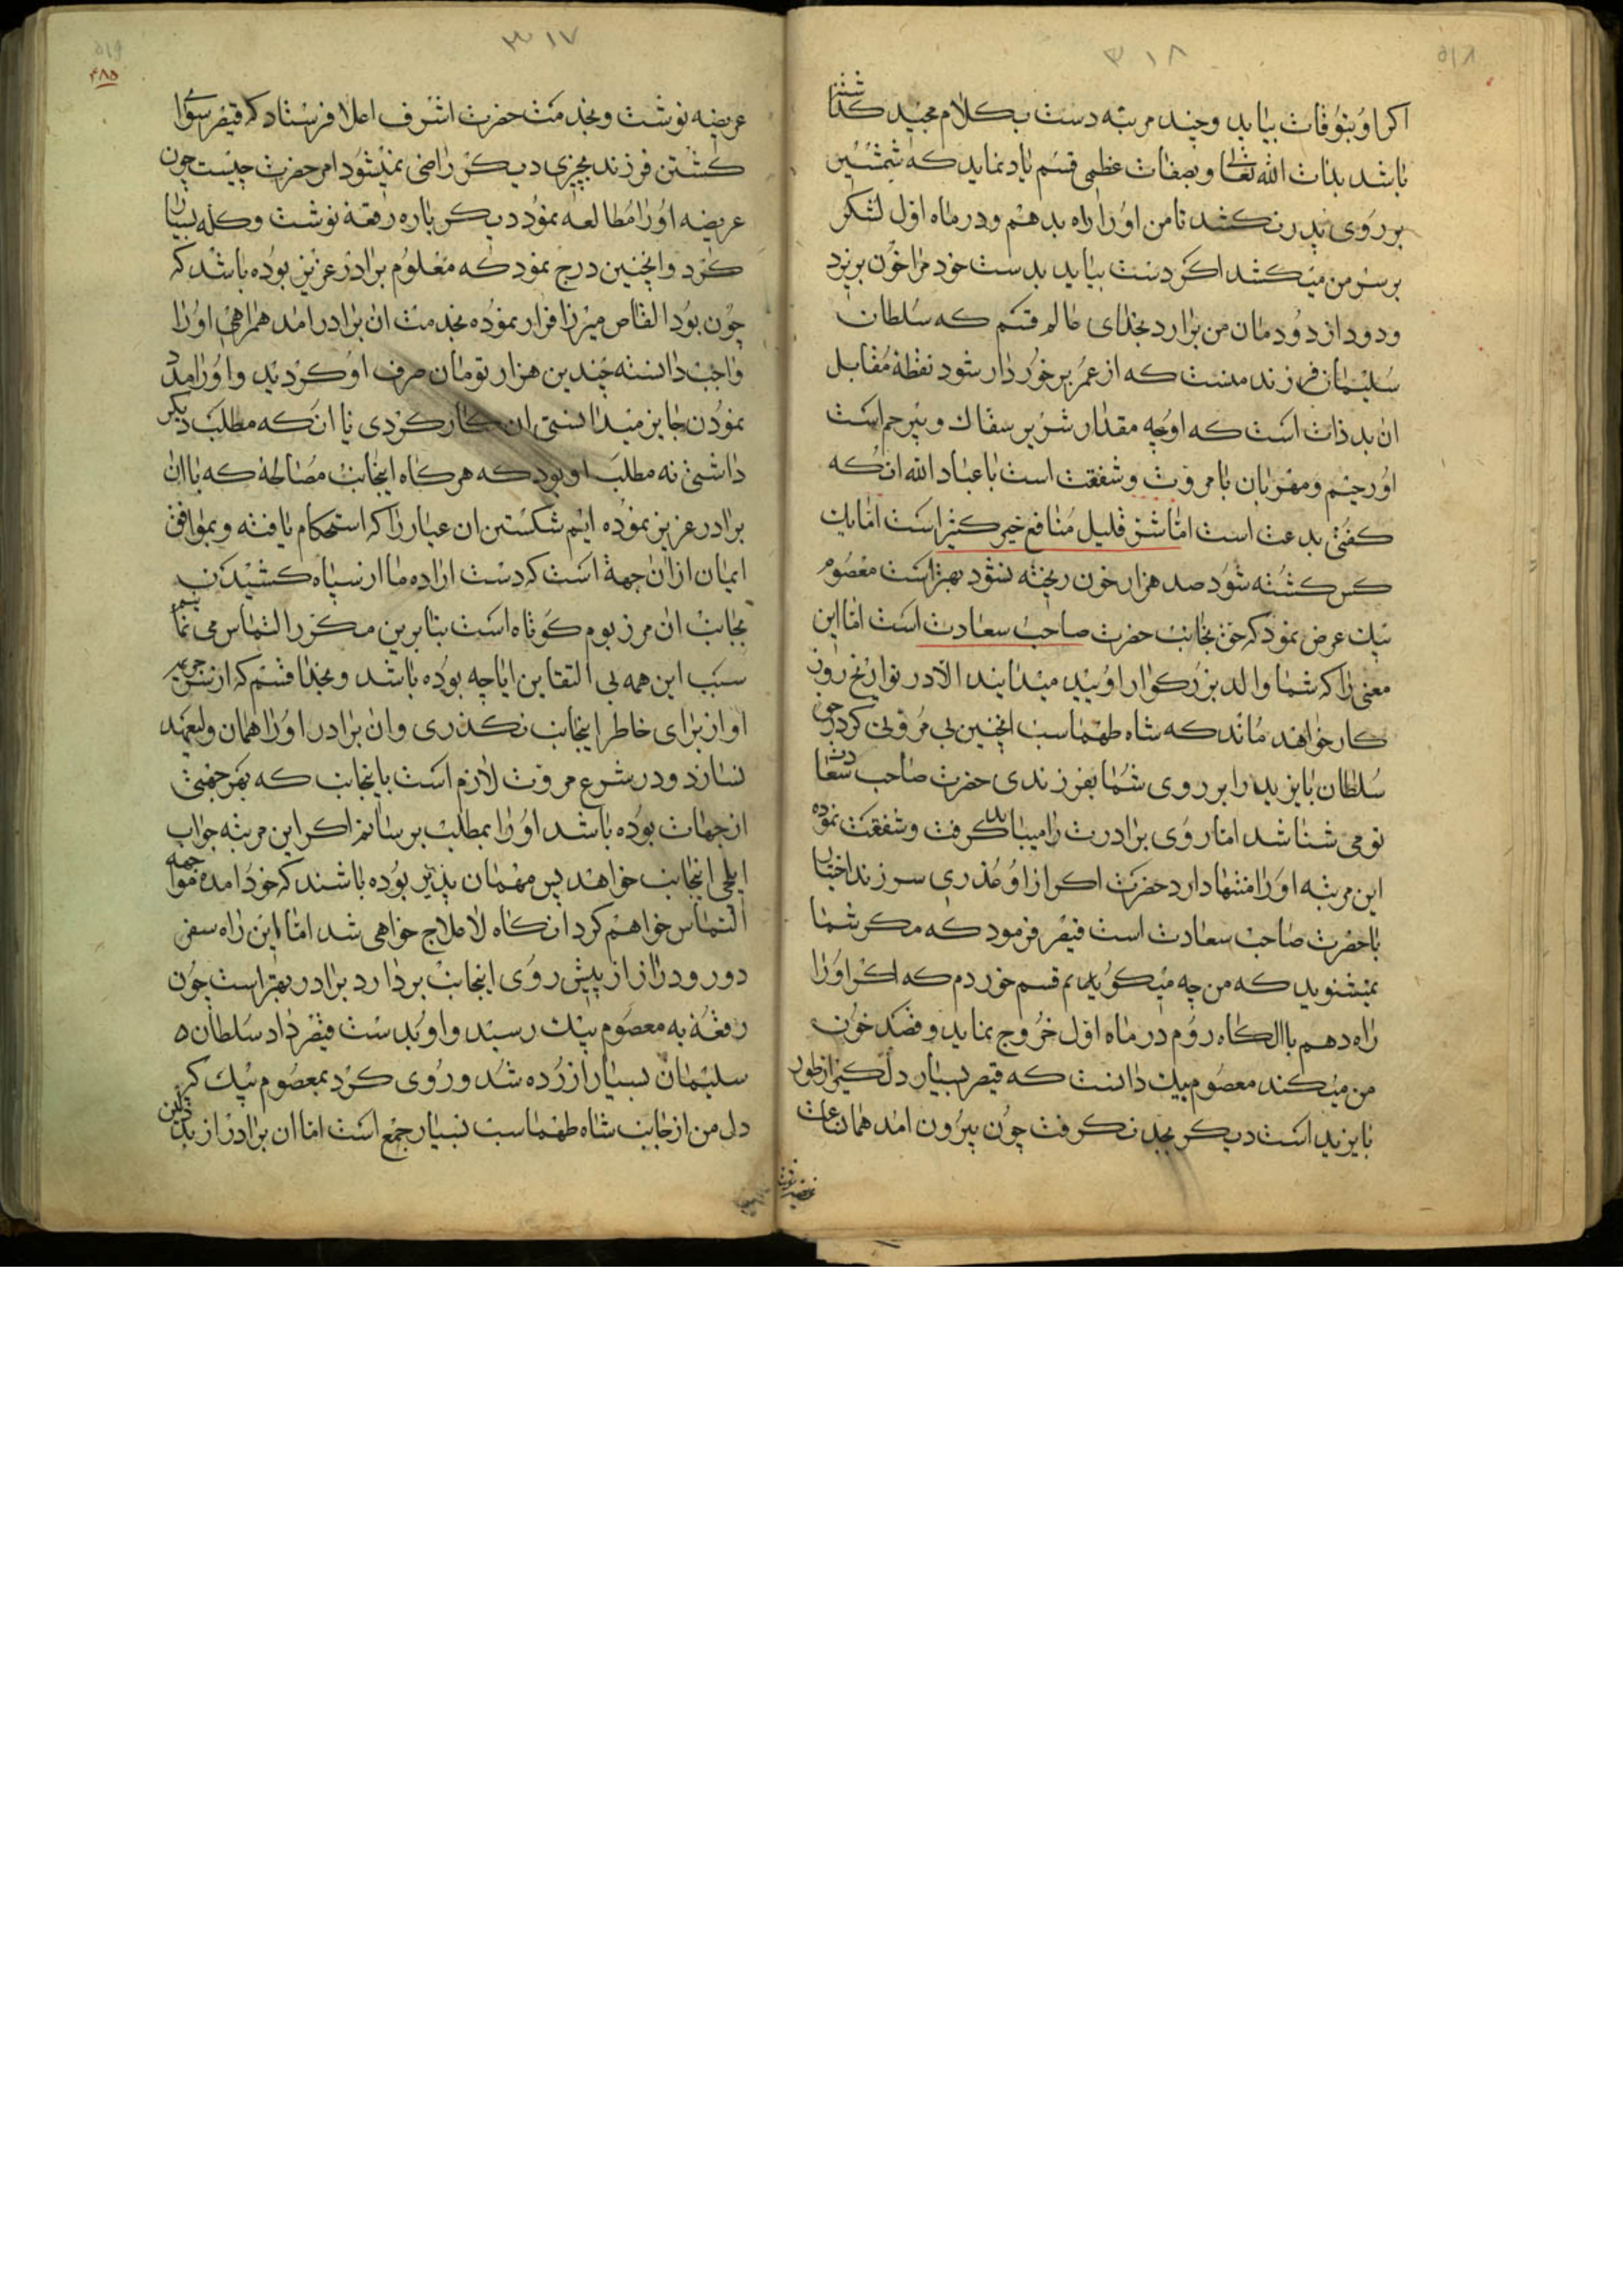 ۳۱۸
۵۱۸
اکر او بتوفات بیاید و چند مرتبه دست بکلام مجید کذاشته
باشد بذات الله تعالی و بصفات عظمی قسم یاد نماید که شمشیر
بر روی پدر نکشد تا من او را راه بدهم و در ماه اول لشکر
بر سر من میکشد اکر دست بیاید بدست خود مرا خون بریزد
و دود از دودمان من برارد بخدای عالم قسم که سلطان
سلیمان فرزند منست که از عمر برخوردار شود نقطهٔ مقابل
ان بد ذات است که او چه مقدار شریر سفاک و بیرحم است
او رحیم و مهربان با مروت و شفقت است با عباد الله انکه
کفتی بدعت است اما شر قلیل منافع خیر کثیر است اما یک
کس کشته شود صد هزار خون ریخته نشود بهتر است معصوم
بیک عرض نمود که حق بجانب حضرت صاحب سعادت است اما این
معنی را که شما و الد بزرکوار اویید میدانید الا در تواریخ روز
کار خواهند ماند که شاه طهماسب اینچنین بی مروتی کرد چون
سلطان بایزید را بر روی شما بفرزندی حضرت صاحب سعادت
تو می شناشد اما روی برادرت را میباید کرفت و شفقت نموده
این مرتبه او را منتها دارد حضرت اکر از او مکذری سر فرزند اختیار
با حضرت صاحب سعادت است قیصر فرمود که مکر شما
نمیشنوید که من چه میکویم قسم خوردم که اکر او را
راه دهم با الکاه روم در ماه اول خروج نماید و قصد خون
من میکند معصوم بیک دانست که قیصر بسیار دل کیر از طور
بایزید است دیکر بجد نکرفت چون بیرون امد همان ساعت
عریضه نوشت
۳۱۷
۵۱۹
۴۸۵
عریضه نوشت و بخدمت حضرت اشرف اعلا فرستاد که قیصر سوای
کشتن فرزند بچیزی دیکر راضی نمیشود امر حضرت چیست چون
عریضه او را مطالعه نمود دیکر باره رقعه نوشت و کله بسیار
کرد و اینچنین درج نمود که معلوم برادر عزیز بوده باشد که
چون بود القاص میرزا فرار نموده بخدمت ان برادر امد همراهی او را
واجب دانسته چندین هزار تومان صرف او کردید و او را مدد
نمودن جایز میدانستی ان کار کردی یا انکه مطلب دیکر
داشتی نه مطلب او بود که هر کاه اینجانب مصالحهٔ که با ان
برادر عزیز نموده ایم شکستن ان عیار را که استحکام یافته و بموافق
ایمان از ان جهة است که دست اراده ما از سپاه کشیدن
بجانب ان مرز بوم کوتاه است بنابرین مکرر التماس می نماییم
سبب این همه بی التفاین ایا چه بوده باشد و بخدا قسم که از سر جریمه
او از برای خاطر اینجانب نکذری و ان برادر او را همان ولیعهد
نسازد و در شرع مروت لازم است باینجانب که بهر جهتی
از جهات بوده باشد او را بمطلب برسانم اکر این مرتبه جواب
ایلچی اینجانب خواهند پس مهمان پذیر بوده باشند که خود امده مواجهه
التماس خواهم کرد انکاه لاعلاج خواهی شد اما این راه سفر
دور و دراز از پیش روی اینجانب بردارد برادر بهتر است چون
رقعه به معصوم بیک رسید و او بدست قیصر داد سلطان
سلیمان بسیار ازرده شد و روی کرد بمعصوم بیک که
دل من از جانب شاه طهماسب بسیار جمع است اما ان برادر از بد ذاتی